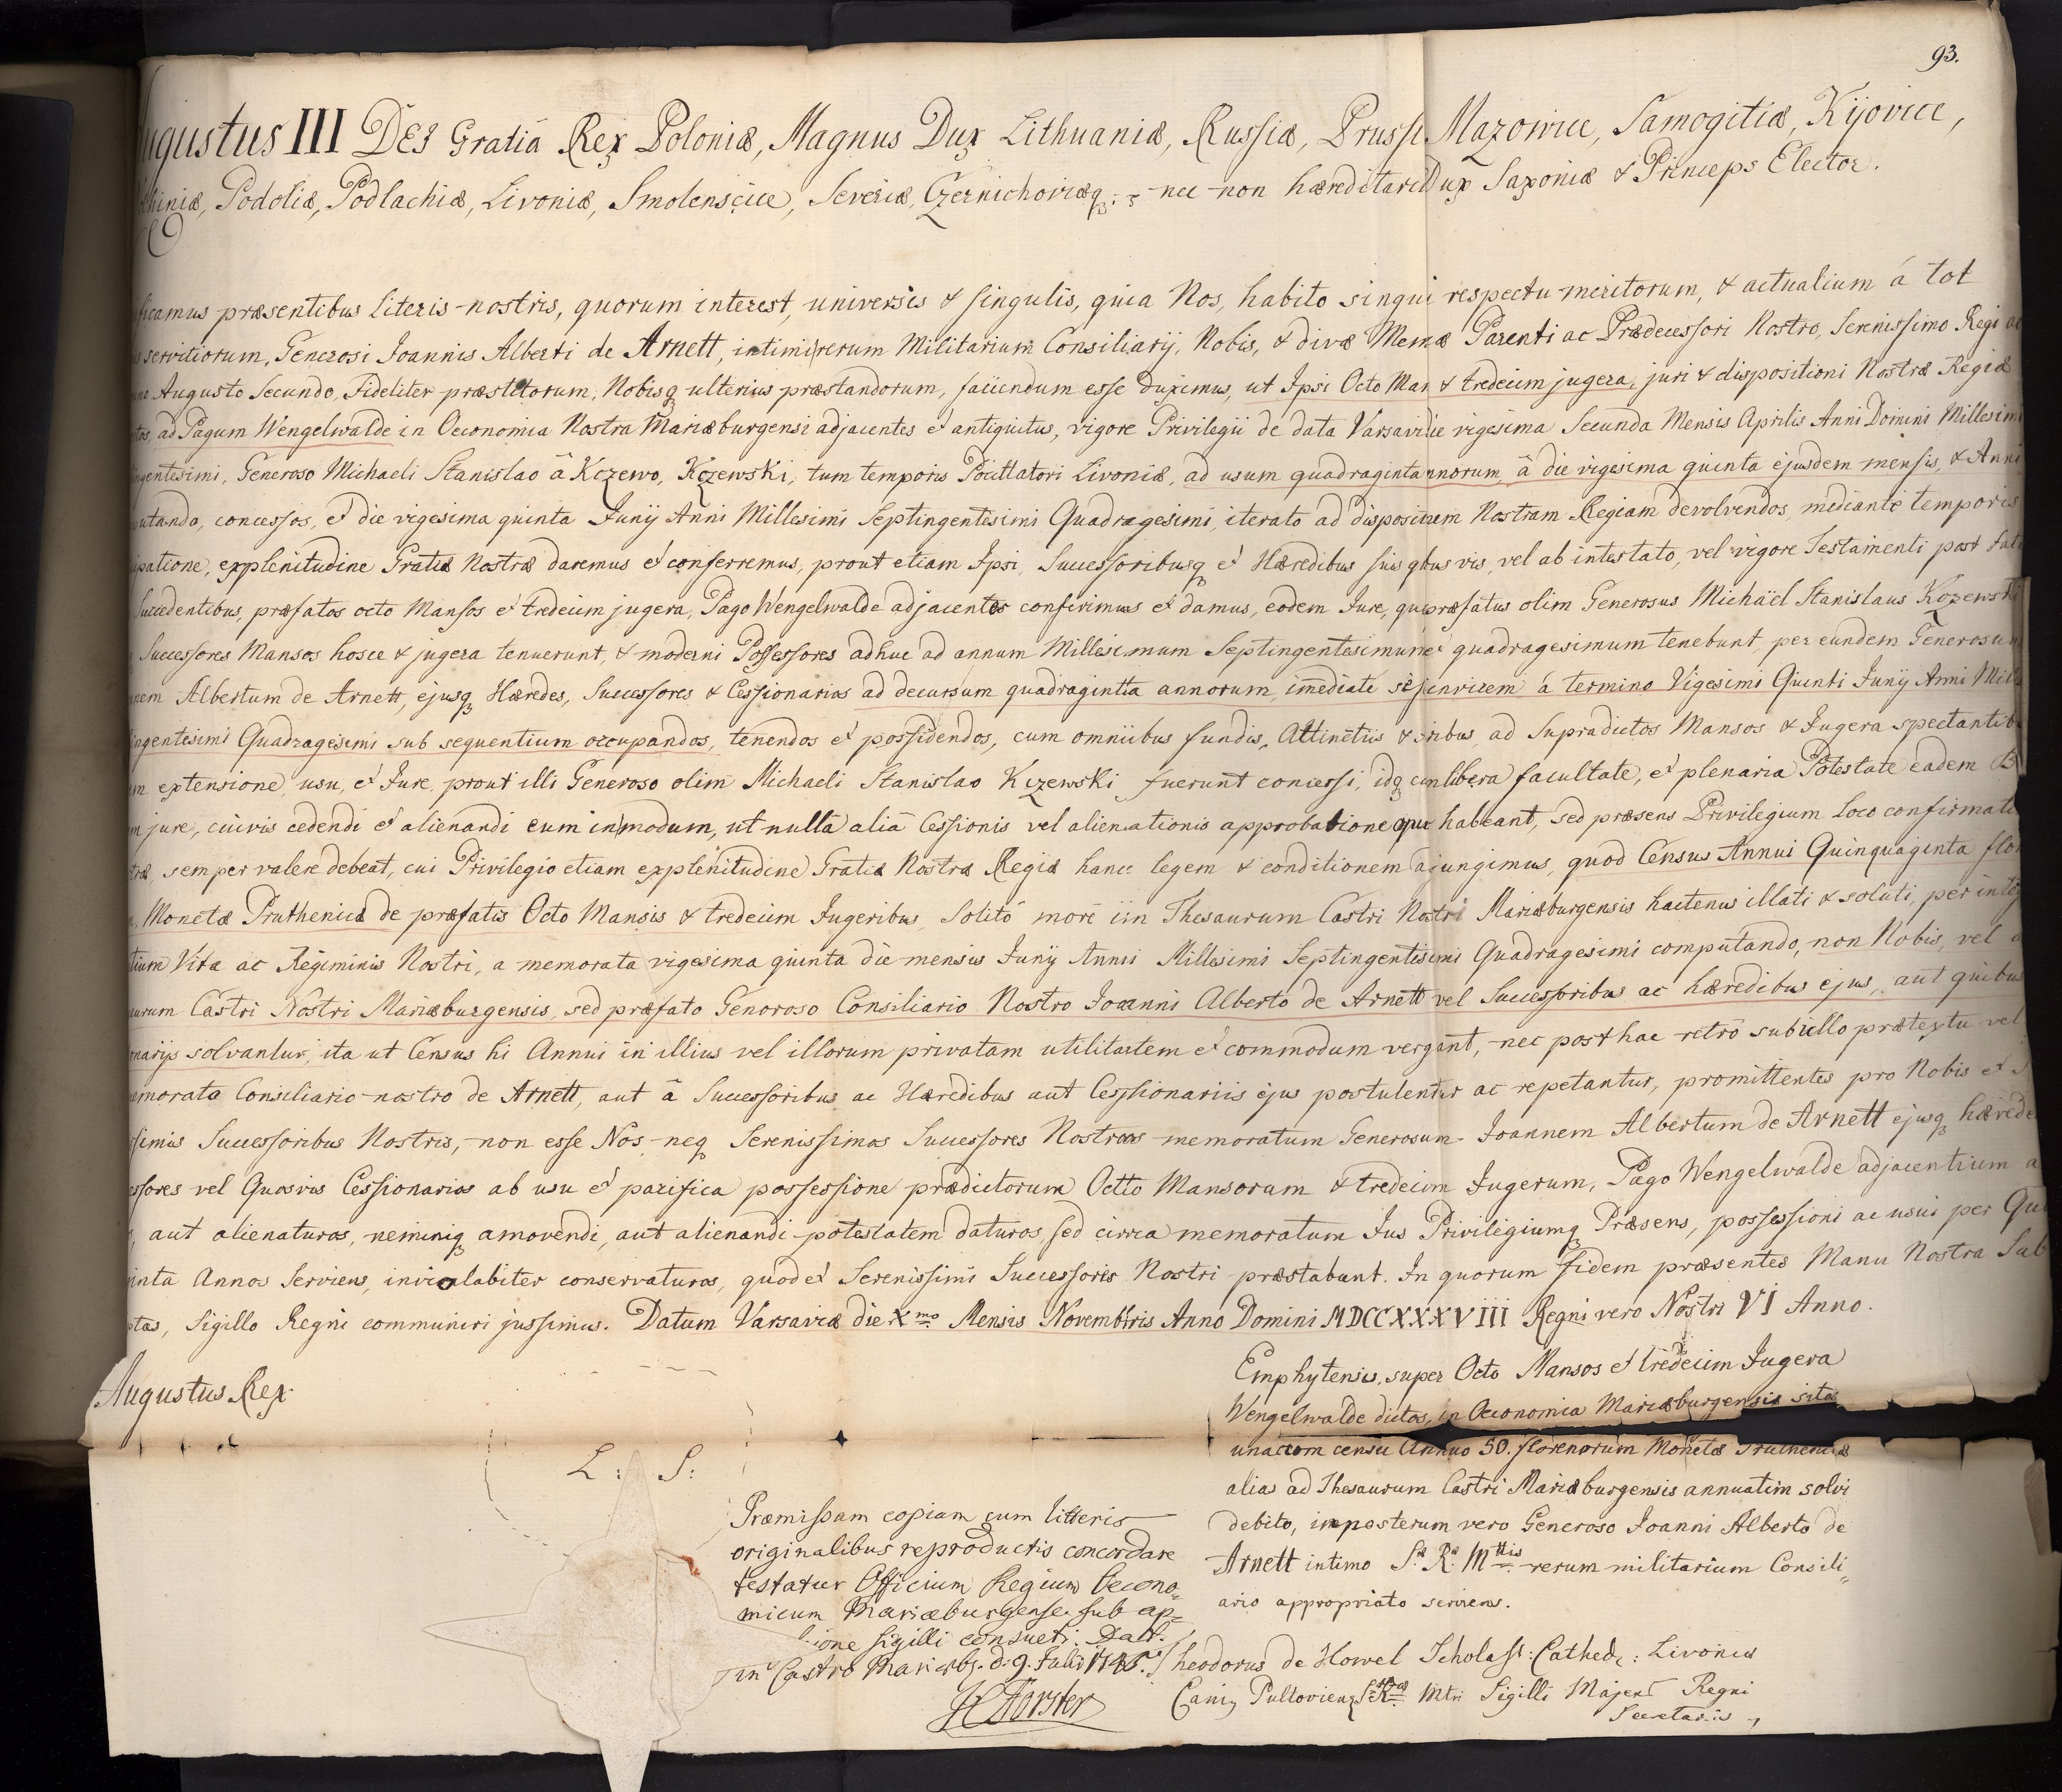 93.
Augustus III DEI Gratiâ Rex Poloniæ, Magnus Dux Lithuaniæ, Russiæ, Prussi Mazoviæ, Samogitiæ, Kijoviæ,
hiniæ, Podoliæ, Podlachiæ, Livoniæ, Smolensciæ, Severiæ, Czernichoviæq; nec non hæreditari Dux Saxoniæ & Princeps Elector.
ficamus præsentibus Literis nostris, quorum interest, universis & singulis, quia Nos, habito singui respectu meritorum, & actualium á tot
servitiorum, Generosi Joannis Alberti de Arnett, intimi rerum Militarium Consiliarij, Nobis, & divæ Memæ Parenti ac Prædecessori Nostro, Serenissimo Regi ac
Augusto Secundo, Fideliter præstitorum, Nobisq ulterius præstandorum, faciendum esse duximus, ut Ipsi Octo Man & tredecim jugera, juri & dispositioni Nostræ Regiæ
tos, ad Pagum Wengelwalde in Oeconomia Nostra Mariæburgensi adjacentes et antiquitus, vigore Privilegii de data Varsaviæ vigesima Secunda Mensis Aprilis Anni Domini Millesimi
ngentesimi, Generoso Michaeli Stanislao â Kczewo, Kczewski, tum temporis Pocillatori Livoniæ, ad usum quadraginta nnorum, â die vigesima quinta ejusdem mensis, & Anni
utando, concessos, et die vigesima quinta Junij Anni Millesimi Septingentesimi Quadragesimi, iterato ad dispositem Nostram Regiam devolvendos, mediante temporis
ipatione, ex plenitudine Gratiæ Nostræ daremus et conferremus, prout etiam Ipsi, Successoribusq et Hæredibus suis qbus vis, vel ab intestato, vel vigore Testamenti post fat
Succedentibus, præfatos octo Mansos et tredecim jugera, Pago Wengelwalde adjacentes conferimus et damus, eodem Jure, quo præfatus olim Generosus Michaël Stanislaus Kczewski
Successores Mansos hosce & jugera tenuerunt, & moderni Possessores adhuc ad annum Millesimum Septingentesimum quadragesimum tenebunt, per eundem Generosum
nem Albertum de Arnett, ejusq Hæredes, Successores & Cessionarios ad decursum quadraginta annorum im̄ediate se invicem a termino Vigesimi Quinti Junij Anni Mill
ingentesimi Quadragesimi sub sequentium occupandos, tenendos et possidendos, cum omnibus fundis, Attinētiis & oribus, ad Supradictos Mansos & Jugera spectantib
m extensione, usu, et Jure, prout illi Generoso olim Michaeli Stanislao Kczewski fuerunt concessi, idq cum libera facultate, et plenaria Potestate eadem
m jure, cuivis cedendi et alienandi eum in modum, ut nullâ aliâ Cessionis vel alienationis approbatione opus habeant, sed præsens Privilegium Loco confirmati
træ semper valere debeat, cui Privilegio etiam ex plenitudine Gratiæ Nostræ Regiæ hanc legem & conditionem ajungimus, quod Census Annui Quinquaginta flor
Monetæ Pruthenicæ de præfatis Octo Mansis & tredecim Jugeribus, solito more in Thesaurum Castri Nostri Mariæburgensis hactenus illati & soluti, per integ
tium Vitæ ac Regiminis Nostri, a memorata vigesima quinta die mensis Junij Anni Millesimi Septingentesimi Quadragesimi computando, non Nobis, vel
aurum Castri Nostri Mariæburgensis, sed præfato Generoso Consiliario Nostro Joanni Alberto de Arnett vel Successoribus ac hæredibus ejus, aut quibus
onarijs solvantur, ita ut Census hi Annui in illius vel illorum privatam utilitatem et commodum vergant, nec posthac retrò sub ullo prætextu vel
emorato Consiliario nostro de Arnett, aut â Successoribus ac Hæredibus aut Cessionariis ejus postulentur ac repetantur, promittentes pro Nobis et
simis Successoribus Nostris, non esse Nos, neq Serenissimos Successores Nostros memoratum Generosum Joannem Albertum de Arnett ejusq hærede
essores vel Quosvis Cessionarios ab usu et pacifica possessione prædictorum Octo Mansorum & tredecim Jugerum, Pago Wengelwalde adjacentium a
aut alienaturos, neminiq amovendi, aut alienandi potestatem daturos, sed circa memoratum Jus Privilegiumq Præsens, possessioni ac usui per Qu
inta Annos Serviens, inviolabiter conservaturos, quod et Serenissimi Successores Nostri præstabunt. In quorum fidem præsentes Manu Nostra Sub
ptas, Sigillo Regni communiri jussimus. Datum Varsaviæ die Xmo Mensis Novembris Anno Domini MDCCXXXVIII Regni vero Nostri VI Anno.
Augustus Rex
L: S:
Emphytensis super Octo Mansos et tredecim Jugera
Wengelwalde dictos, in Oeconomia Mariæburgensis sitos
una cum censu Annuo 50. florenorum Monetæ Pruthenicæ
alias ad Thesaurum Castri Mariæburgensis annuatim solvi
debito, imposterum vero Generoso Joanni Alberto de
Arnett intimo S. R. Mttis rerum militarium Consili-
ario appropriato serviens.
Præmissam copiam cum litteris
originalibus reproductis concordare
testatur Officium Regium Oecono-
micum Mariæburgense sub ap-
ione sigilli consueti. Dat.
in Castro Mariæb. d. 9. Julii
Forster
Theodorus de Howel Scholast: Cathedr: Livoniæ
Pultoviens S. R. Mtis Sigilli Majoris Regni
Secretarius